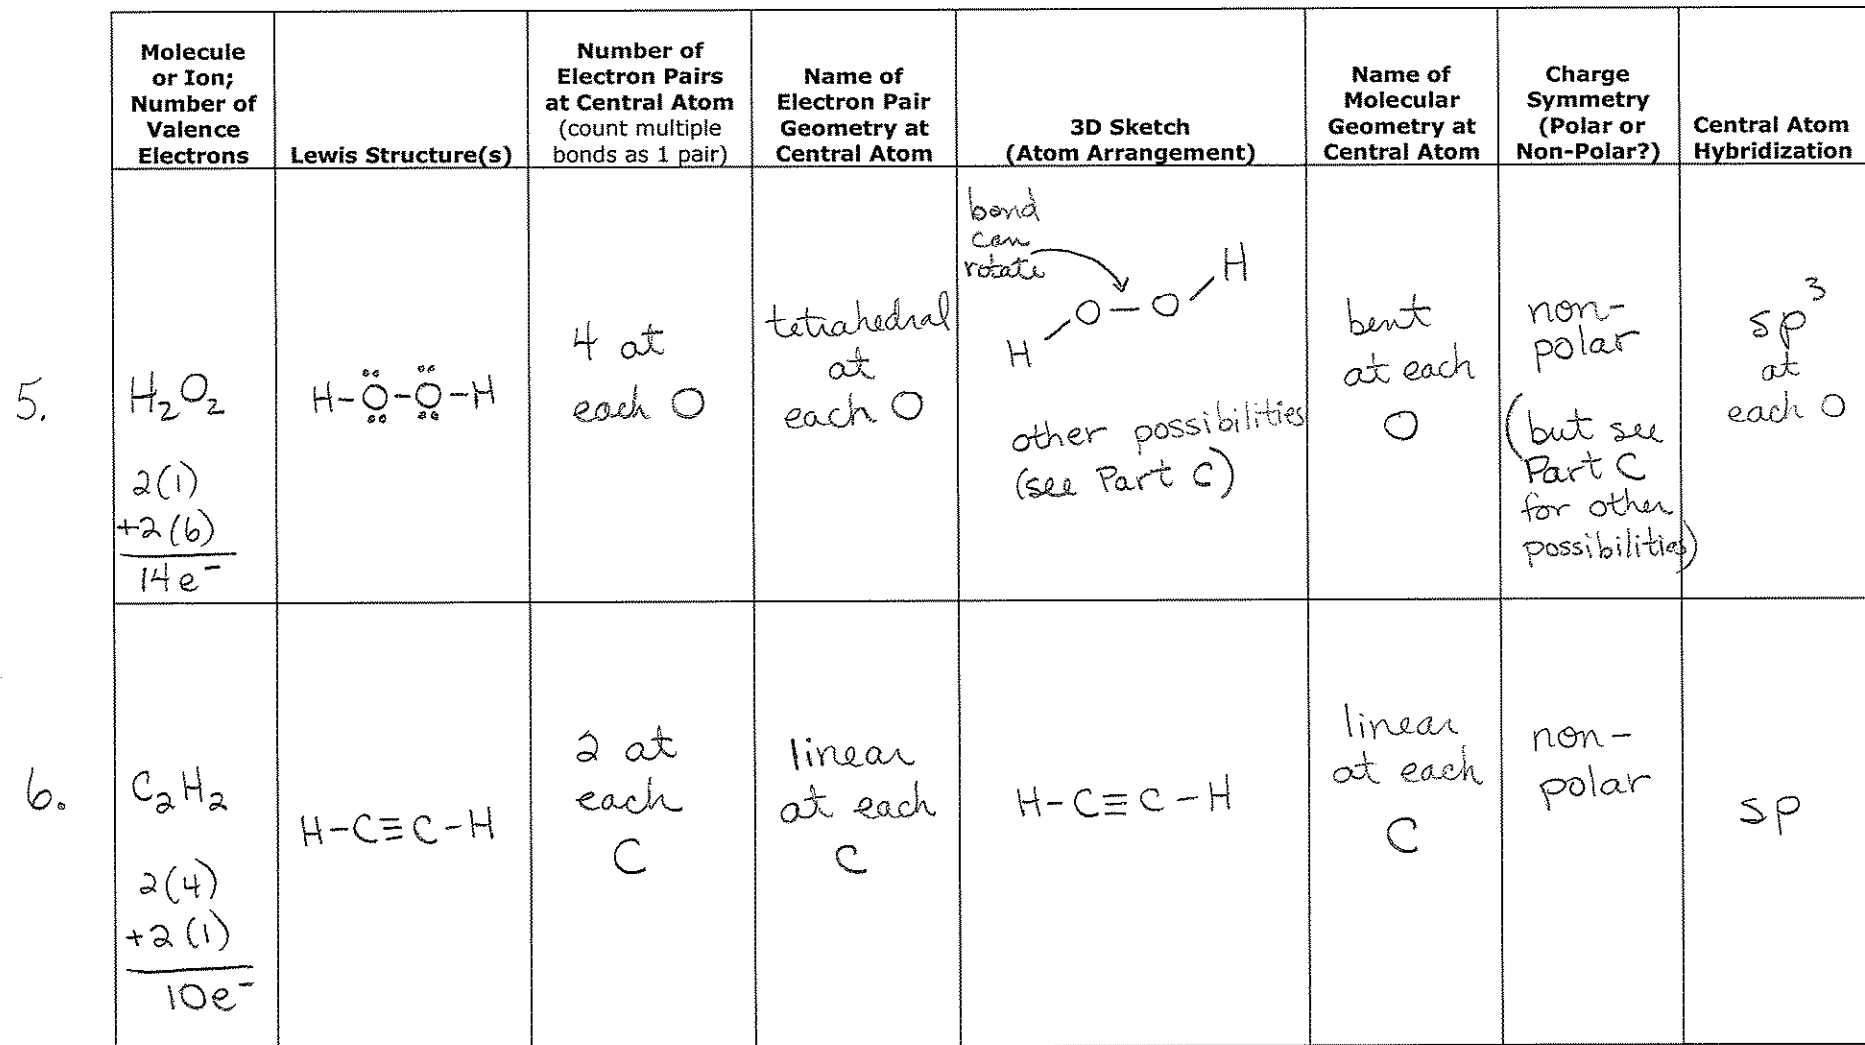 Molecule
or Ion;
Number of
Valence
Electrons
Lewis Structure(s)
Number of
Electron Pairs
at Central Atom
(count multiple
bonds as 1 pair)
Name of
Electron Pair
Geometry at
Central Atom
3D Sketch
(Atom Arrangement)
Name of
Molecular
Geometry at
Central Atom
Charge
Symmetry
(Polar or
Non-Polar?)
Central Atom
Hybridization
5.
H₂O₂
2(1)
+2(6)
14e⁻
H-Ö-Ö-H
4 at
each O
tetrahedral
at
each O
bond
can
rotate
H
O-O
H
other possibilities
(see Part C)
bent
at each
O
non-
polar
(but see
Part C
for other
possibilities)
sp³
at
each O
6.
C₂H₂
2(4)
+2(1)
10e⁻
H-C≡C-H
2 at
each
C
linear
at each
C
H-C≡C-H
linear
at each
C
non-
polar
sp